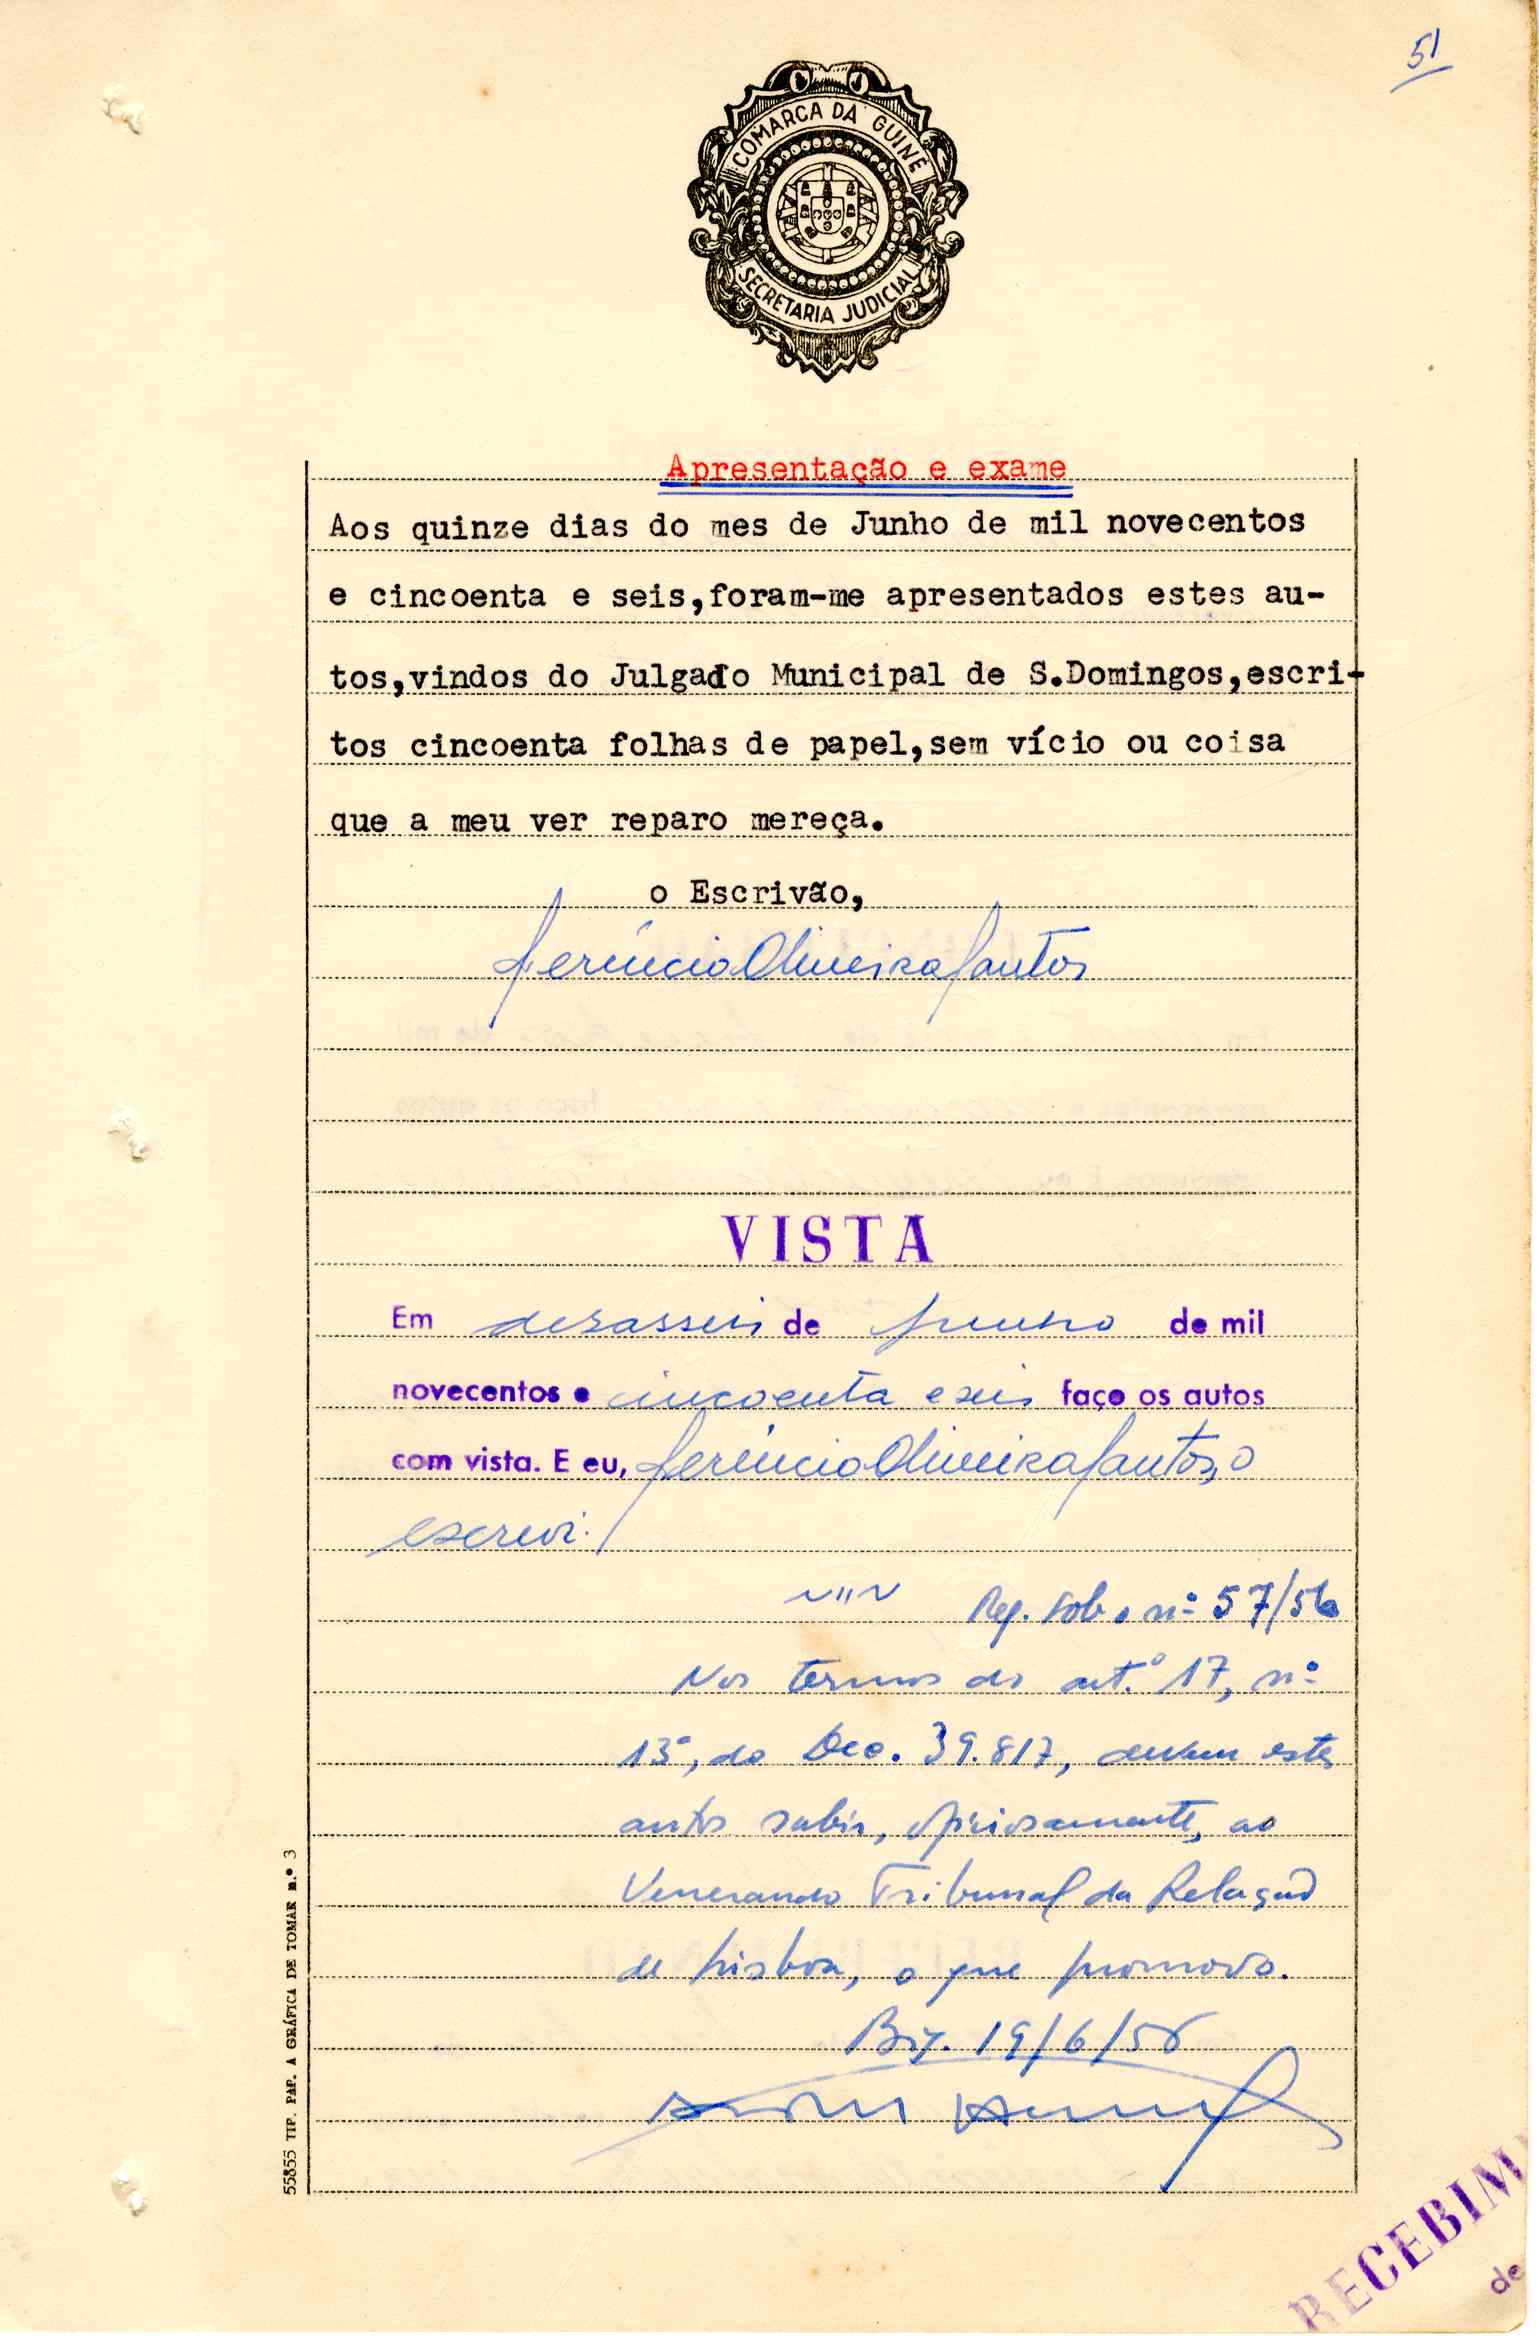 51
C J
COMARCA DA GUINÉ
SECRETARIA JUDICIAL
Apresentação e exame
Aos quinze dias do mes de Junho de mil novecentos
e cincoenta e seis,foram-me apresentados estes au-
tos,vindos do Julgado Municipal de S.Domingos,escri-
tos cincoenta folhas de papel,sem vício ou coisa
que a meu ver reparo mereça.
o Escrivão,
Oliveira Santos
VISTA
Em dezasseis de Junho de mil
novecentos e cincoenta e seis faço os autos
com vista. E eu, Oliveira Santos, o
escrevi.
Reg. sob o nº 57/56
Nos termos do art.º 17, nº
13º, do Dec. 39.817, devem estes
autos subir, oficiosamente, ao
Venerando Tribunal da Relação
de Lisboa, o que promovo.
19/6/56
55855 TIP. PAP. A GRÁFICA DE TOMAR n.º 3
RECEBIM
de